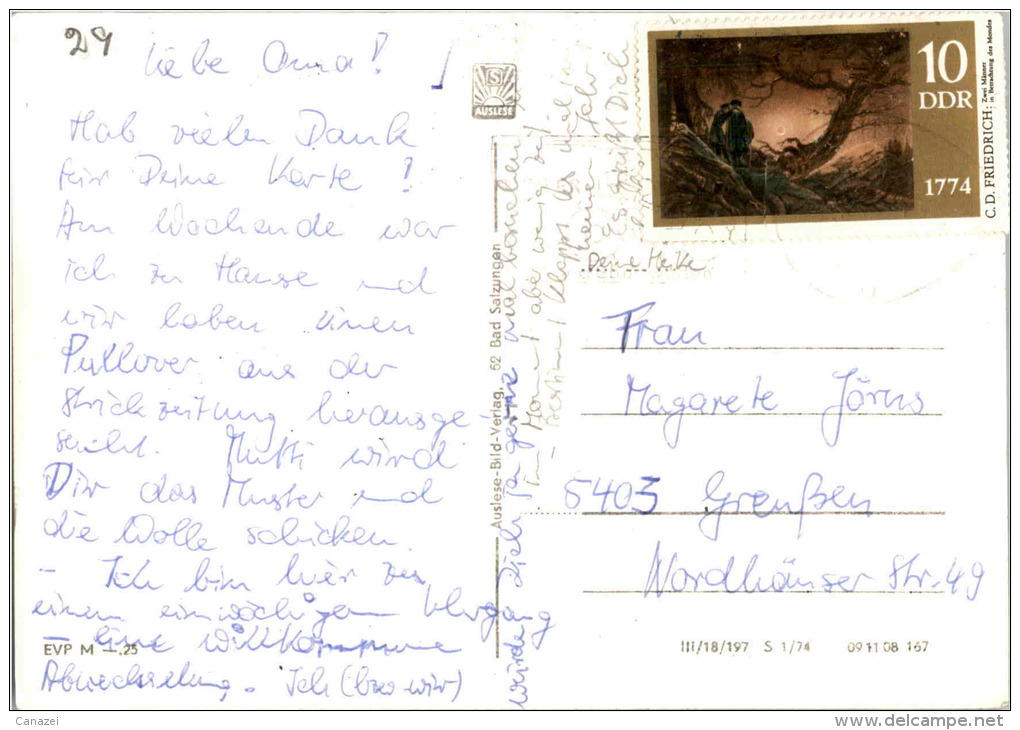 29
Liebe Oma!
Hab vielen Dank
für Deine Karte!
Am Wochende war
ich zu Hause und
wir haben einen
Pullover aus der
Strickzeitung herausge-
sucht. Mutti wird
Dir das Muster und
die Wolle schicken.
- Ich bin hier zu
einem einwöchigen
– eine willkommene
Abwechslung. Ich (bzw wir)
würde Dich ja gerne mal besuchen
im aber wenig Zeit
Bestimmt klappt es mal in
Jahr
Es grüßt Dich
Deine Heike
S
AUSLESE
Auslese-Bild-Verlag, 62 Bad Salzungen
EVP M —,25
10
DDR
1774
C. D. FRIEDRICH: Zwei Männer
in Betrachtung des Mondes
Frau
Magarete Jörns
5403 Greußen
Nordhäuser Str. 49
III/18/197 S 1/74 09 11 08 167
Canazei
www.delcampe.net